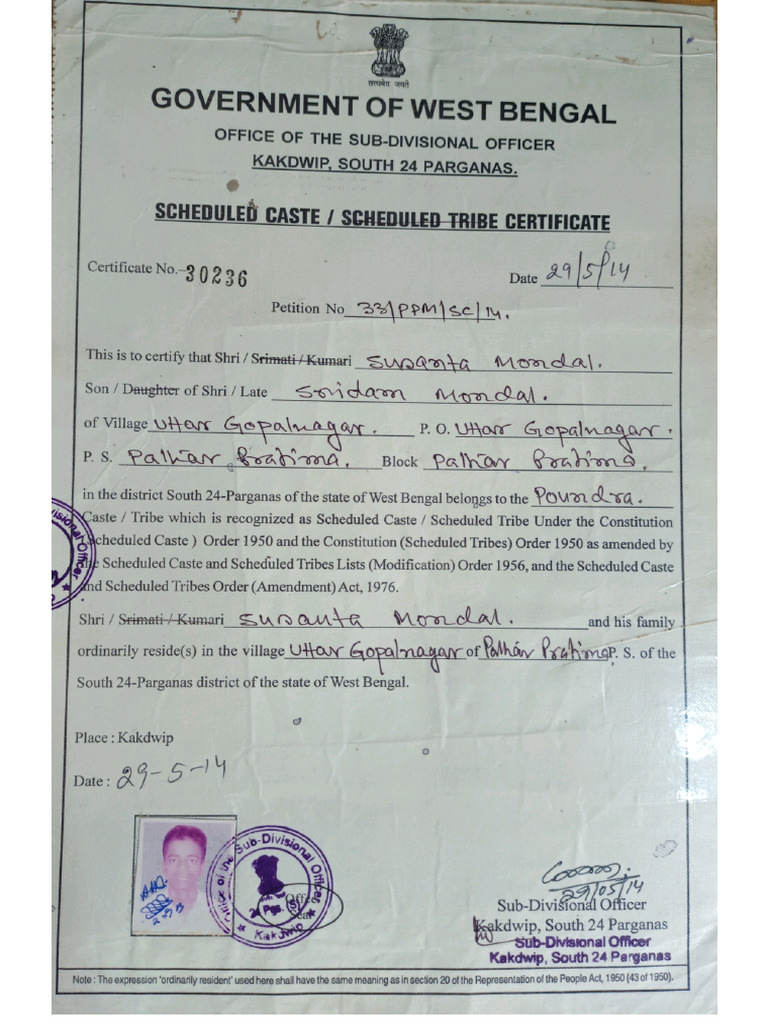 सत्यमेव जयते
GOVERNMENT OF WEST BENGAL
OFFICE OF THE SUB-DIVISIONAL OFFICER
KAKDWIP, SOUTH 24 PARGANAS.
SCHEDULED CASTE / SCHEDULED TRIBE CERTIFICATE
Certificate No. 30236
Date 29/5/14
Petition No 33/PPM/SC/14.
This is to certify that Shri / Srimati / Kumari Susanta Mondal.
Son / Daughter of Shri / Late Sridam Mondal.
of Village Uttar Gopalnagar. P. O. Uttar Gopalnagar.
P. S. Pathar Pratima. Block Pathar Pratima.
in the district South 24-Parganas of the state of West Bengal belongs to the Poundra.
Caste / Tribe which is recognized as Scheduled Caste / Scheduled Tribe Under the Constitution
(Scheduled Caste ) Order 1950 and the Constitution (Scheduled Tribes) Order 1950 as amended by
the Scheduled Caste and Scheduled Tribes Lists (Modification) Order 1956, and the Scheduled Caste
and Scheduled Tribes Order (Amendment) Act, 1976.
Shri / Srimati / Kumari Susanta Mondal. and his family
ordinarily reside(s) in the village Uttar Gopalnagar of Pathar Pratima P. S. of the
South 24-Parganas district of the state of West Bengal.
Place : Kakdwip
Date : 29-5-14
Office of the Sub-Divisional Officer
24 Pgs.
Kakdwip
Office
Seal
29/05/14
Sub-Divisional Officer
Kakdwip, South 24 Parganas
Sub-Divisional Officer
Kakdwip, South 24 Parganas
Note : The expression 'ordinarily resident' used here shall have the same meaning as in section 20 of the Representation of the People Act, 1950 (43 of 1950).